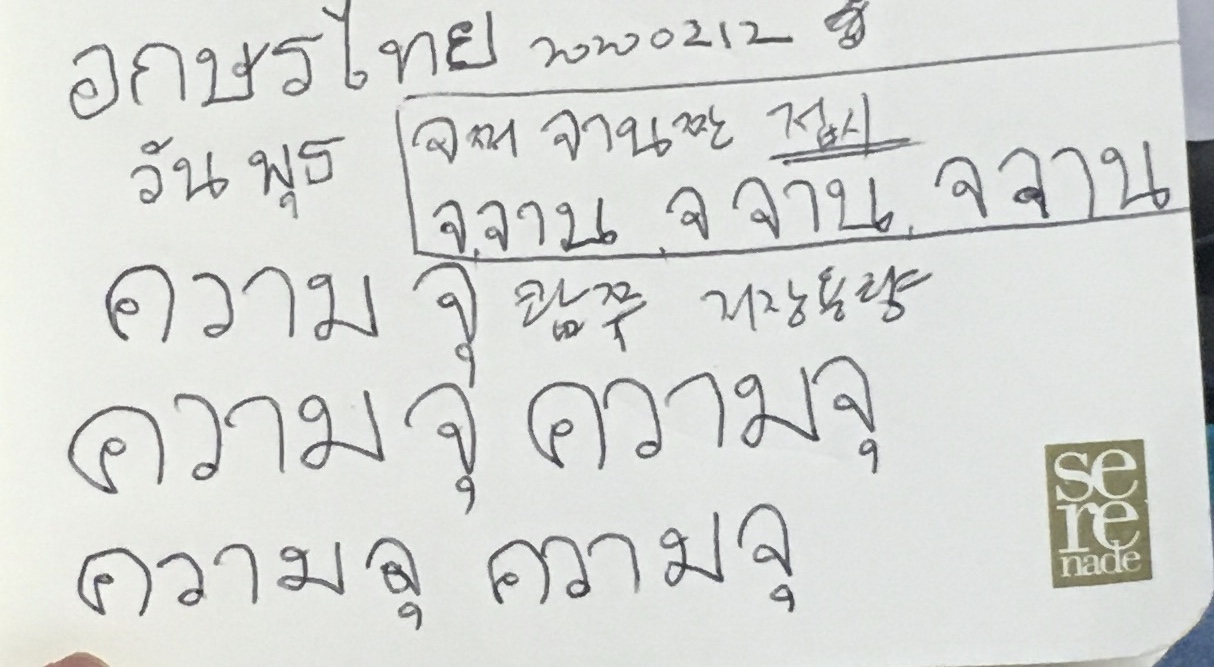 อกษรไทย 20200212 수
วันพุธ
จ쩌 จาน짠 접시
จ.จาน, จ จาน, จ จาน
ความจุ 캄쭈 저장용량
ความจุ ความจุ
ความจุ ความจุ
se
re
nade